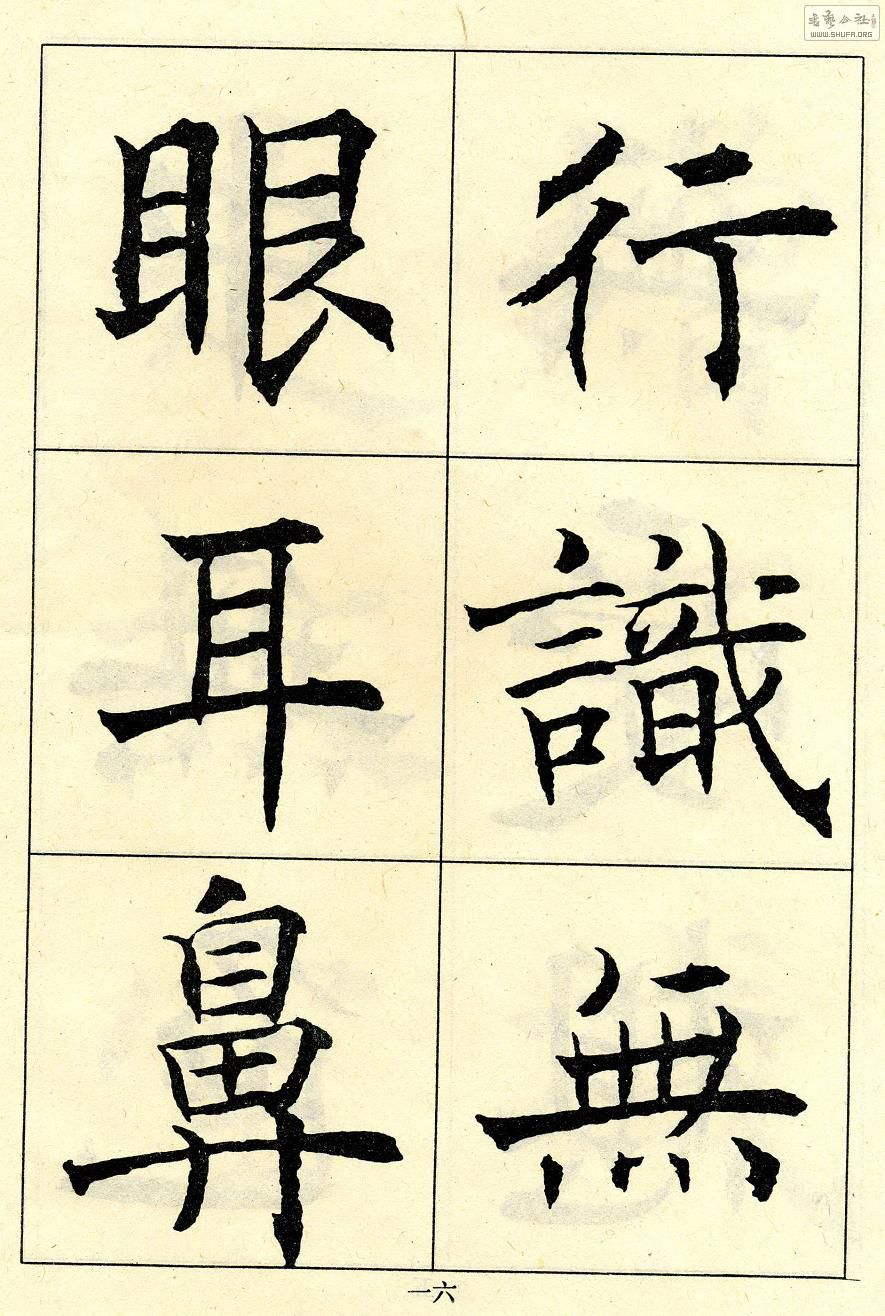 行識無
眼耳鼻
一六
WWW.SHUFA.ORG